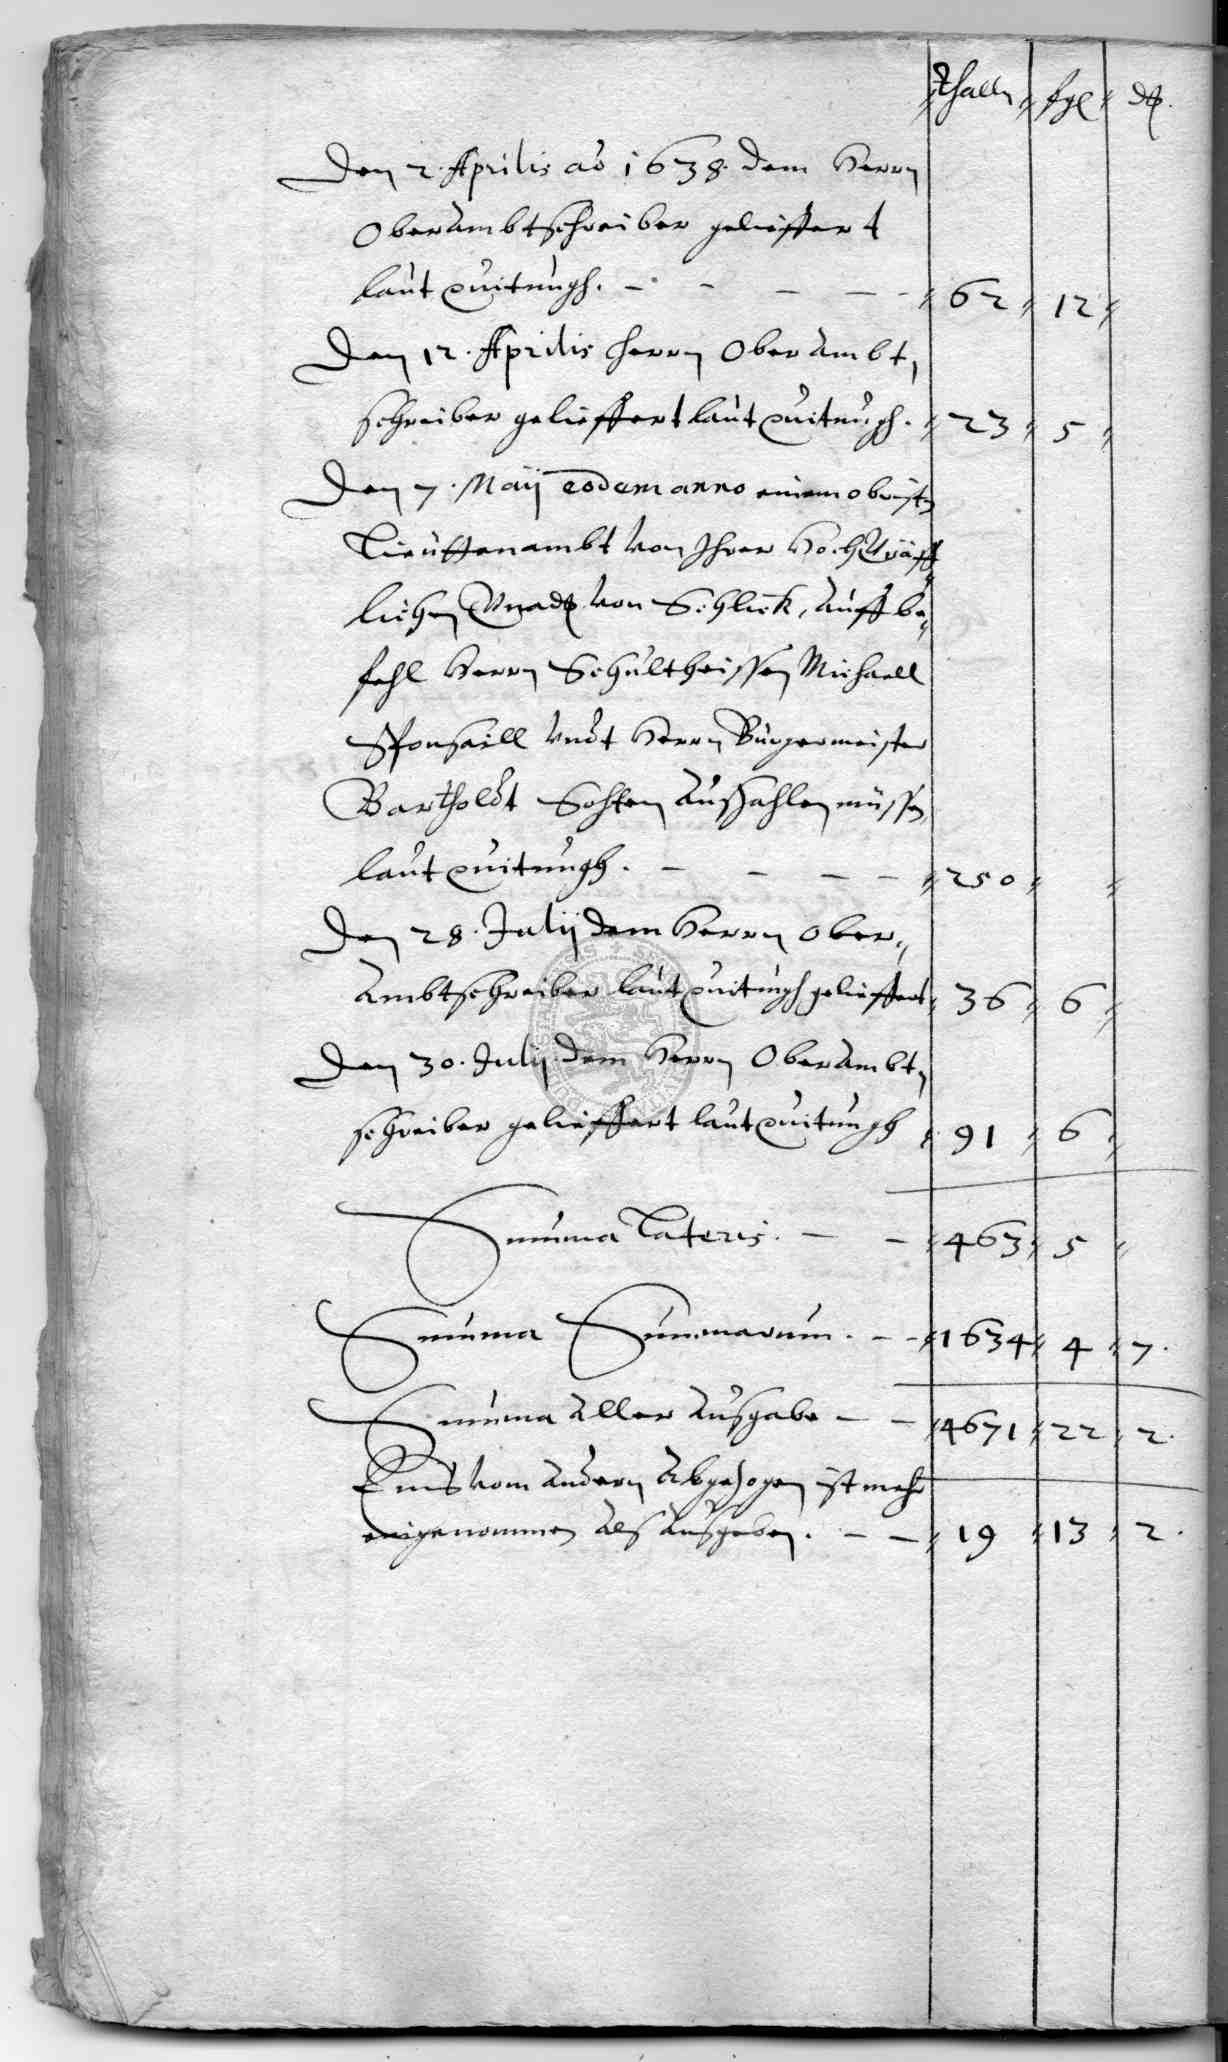 Thall. sgl d.
Den 2. Aprilis aõ 1638. dem Herrn
Oberambtschreiber gelieffert
laut quitungh. - - - - 62 12
Den 12. Aprilis Herrn Oberambt„
schreiber gelieffert laut quitungh. 23 5
Den 7. Maÿ eodem anno einem obristen
Lieuttenambt von Ihrer Hochgräff„
lichen Gnad. von Schlick, auff be„
fehl Herrn Schultheissen Michaell
vndt Herrn Burgermeister
Bartholdt außzahlen müssen
laut quitungh. - - - - 250
Den 28. Julÿ dem Herrn Ober„
Ambtschreiber laut quitungh gelieffert 36 6
Den 30. Julÿ dem Herrn Oberambt„
schreiber gelieffert laut quitungh 91 6
Summa Lateris. - - 463 5
Summa Summarum. - - 1634 4 7.
Summa aller Ausgabe - - 4671 22 2.
Eins vom andern Abgezogen ist mehr
eingenommen als ausgeben. - - 19 13 2.